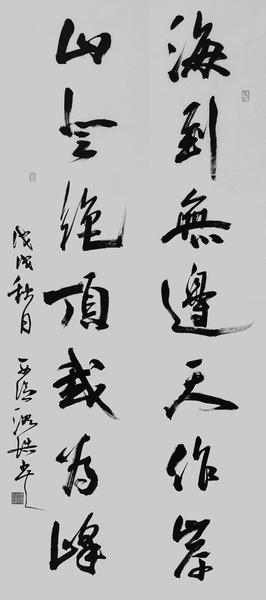 海到無邊天作岸
山登絶頂我为峰
戊戌秋月